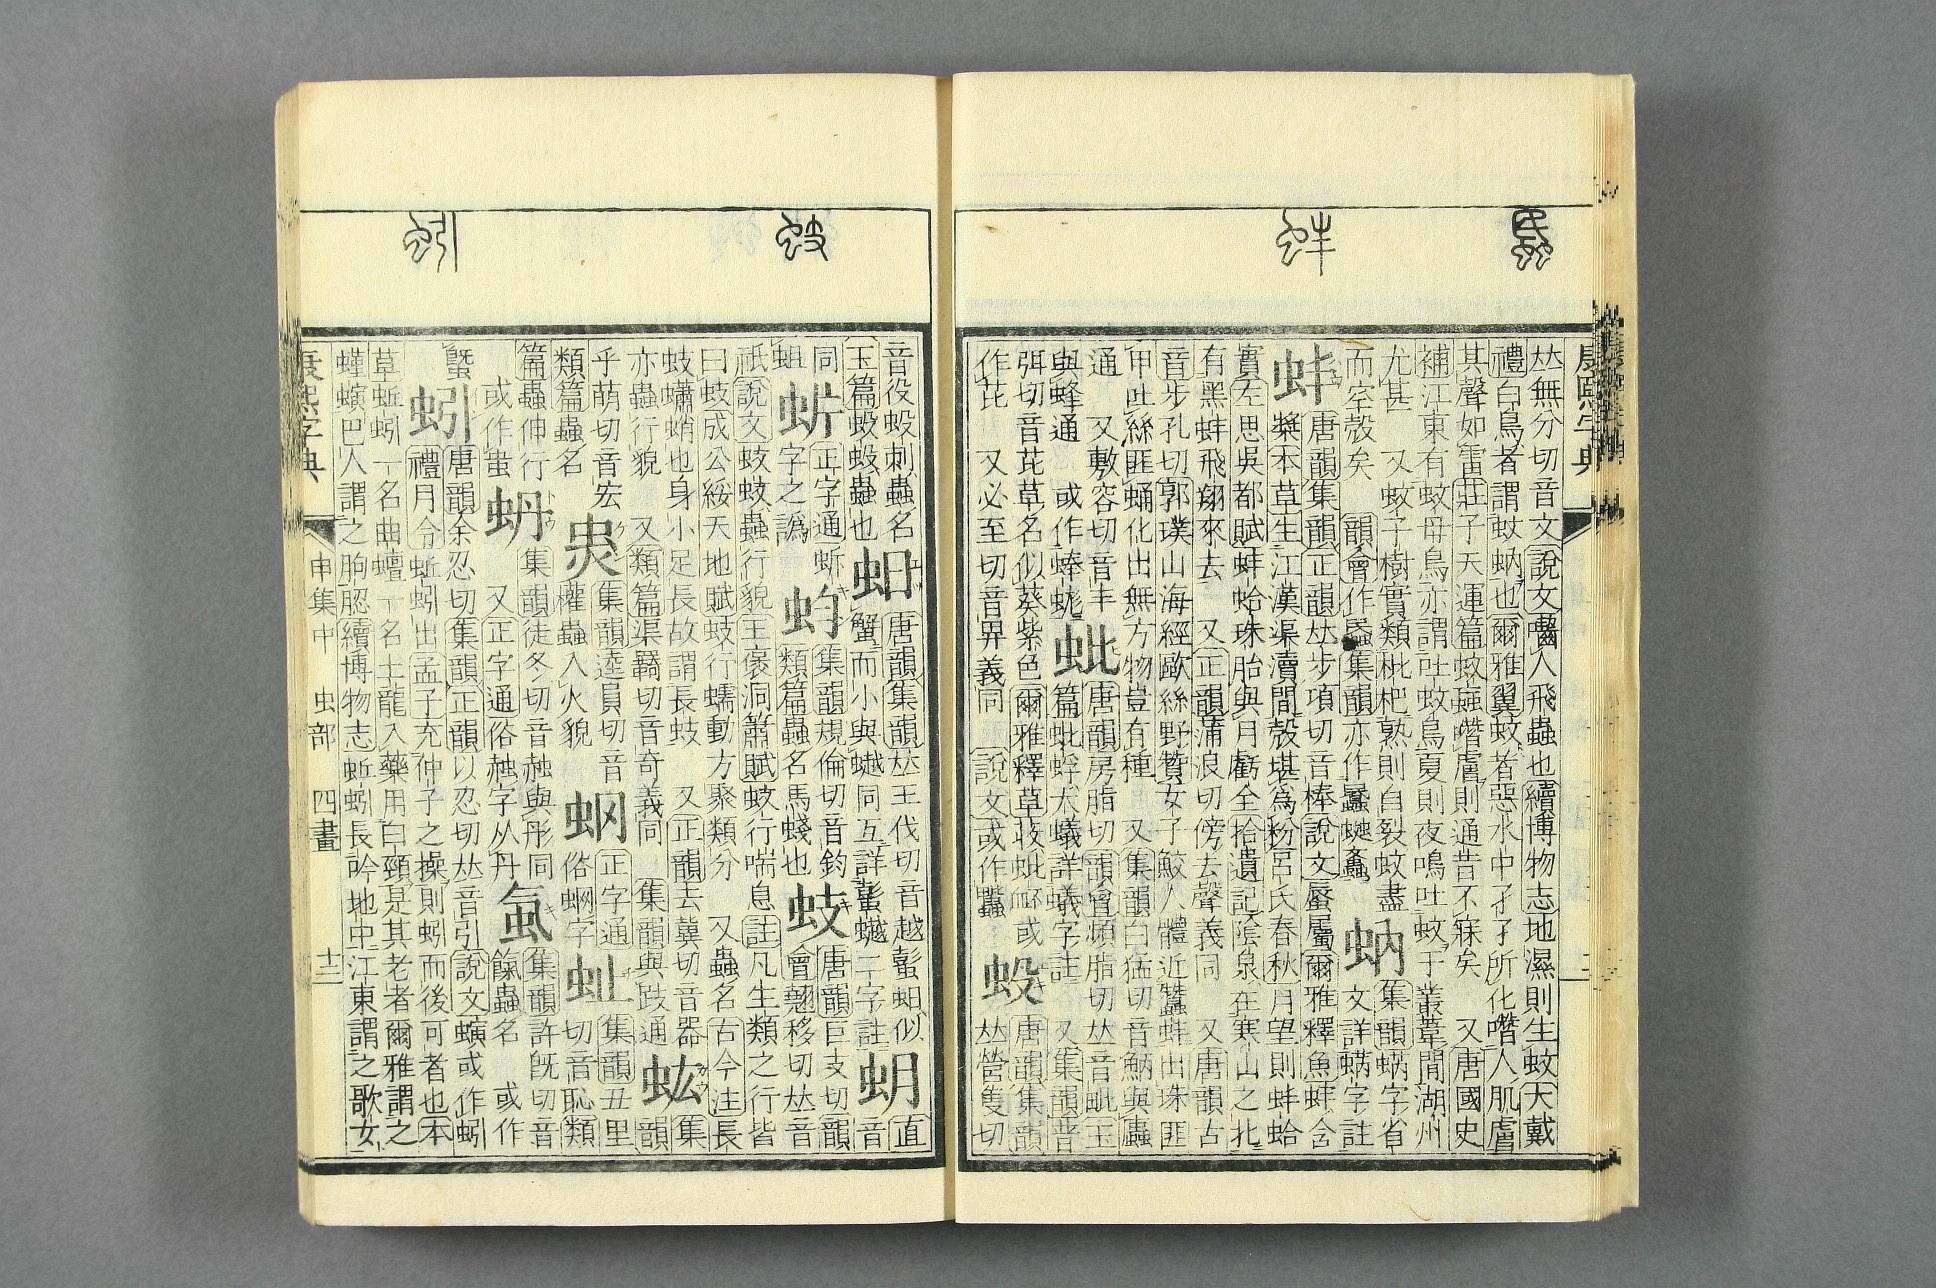 𠀤無分切音文說文齧人飛蟲也續博物志地濕則生蚊大戴
禮白鳥者謂蚊蚋也爾雅翼蚊者惡水中孑孑所化噆人肌膚
其聲如雷莊子天運篇蚊蝱噆膚則通昔不寐矣 又唐國史
補江東有蚊母鳥亦謂吐蚊鳥夏則夜鳴吐蚊于叢葦間湖州
尤甚 又蚊子樹實類枇杷熟則自裂蚊盡
而空殼矣 韻會作蟁集韻亦作
蚋
集韻蜹字省
文詳蜹字註
蚌
唐韻集韻正韻𠀤步項切音棒說文蜃屬爾雅釋魚蚌含
漿本草生江漢渠瀆間殼堪為粉呂氏春秋月望則蚌蛤
實左思吳都賦蚌蛤珠胎與月虧全拾遺記陰泉在寒山之北
有黑蚌飛翔來去 又正韻蒲浪切傍去聲義同 又唐韻古
音步孔切郭璞山海經歐絲野贊女子鮫人體近蠶蚌出珠匪
甲吐絲匪蛹化出無方物豈有種 又集韻白猛切音鮩與蟲
通 又敷容切音丰
與蜂通 或作蜯
蚍
唐韻房脂切韻會頻脂切𠀤音毗玉
篇蚍蜉大蟻詳蟻字註 又集韻普
弭切音芘草名似葵紫色爾雅釋草荍蚍衃或
作芘 又必至切音畀義同 說文或作
蚥
唐韻集韻
𠀤營隻切
音役蛟刺蟲名
玉篇蛟蛟蟲也
蚎
唐韻集韻𠀤王伐切音越蟛蚎似
蟹而小與𧑅同互詳蟛𧑅二字註
蚏
直
音
同
蛆
蚚
正字通蚚
字之譌
蚐
集韻規倫切音鈞
類篇蟲名馬蠖也
蚑
唐韻巨支切韻
會翹移切𠀤音
祇說文蚑蚑蟲行貌王褒洞簫賦蚑行喘息註凡生類之行皆
曰蚑成公綏天地賦蚑行蠕動方聚類分 又蟲名古今注長
蚑蠨蛸也身小足長故謂長蚑 又正韻去冀切音器
亦蟲行貌 又類篇渠羈切音奇義同 集韻與跂通
蚢
集
韻
乎萌切音宏
類篇蟲名
蚗
集韻逵員切音
權蟲入火貌
蚒
正字通
俗蜩字
蚔
集韻丑里
切音恥類
篇蟲伸行
或作蚩
蚦
集韻徒冬切音赨與彤同
又正字通俗赨字从丹
䖤
集韻許旣切音
餼蟲名 或作
蟹
蚓
唐韻余忍切集韻正韻以忍切𠀤音引說文螾或作蚓
禮月令蚯蚓出孟子充仲子之操則蚓而後可者也本
草蚯蚓一名曲蟮一名土龍入藥用白頸是其老者爾雅謂之
螼螾巴人謂之朐䏰續博物志蚯蚓長吟地中江東謂之歌女
康熙字典 申集中 虫部 四畫 十二